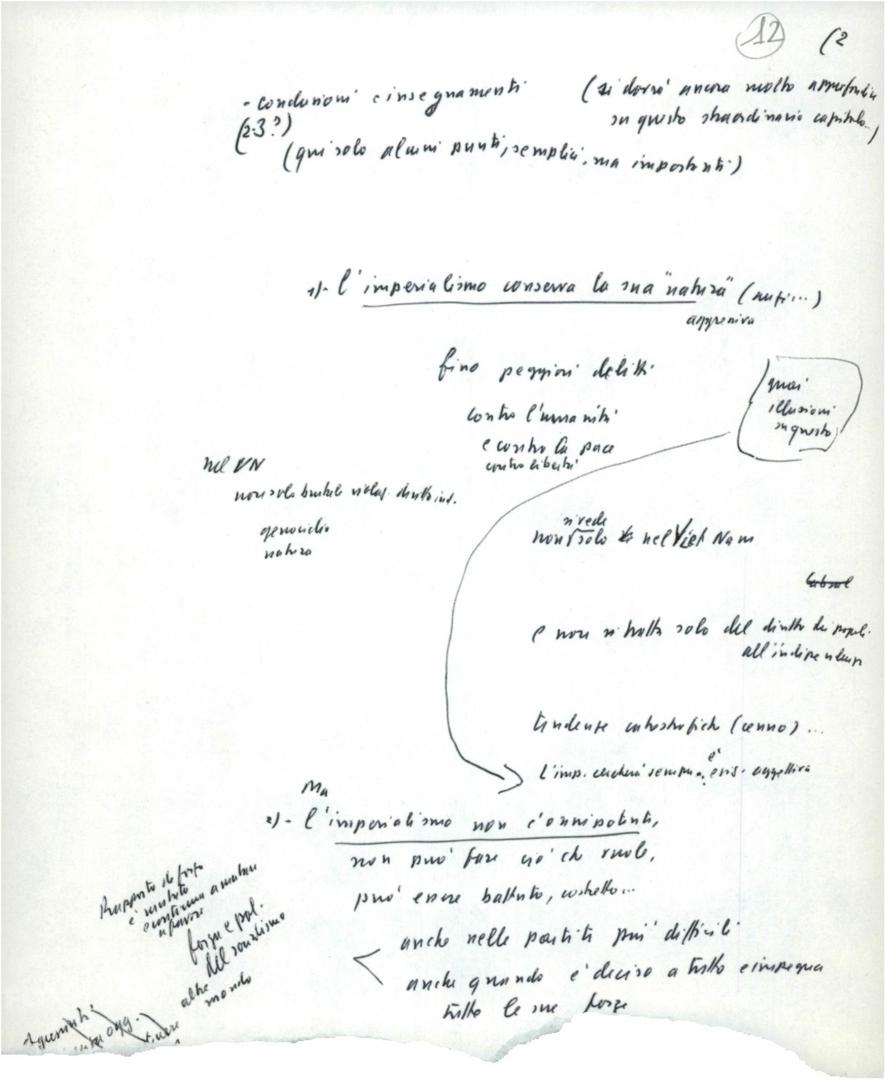 12 (2
- conclusioni e insegnamenti (si dovrà ancora molto approfondire
(2-3?) su questo straordinario capitolo...)
(qui solo alcuni punti, semplici, ma importanti)
1)- l'imperialismo conserva la sua "natura" (anzi...)
aggressiva
fino peggiori delitti
contro l'umanità
e contro la pace
contro libertà
guai
illusioni
su questo
nel VN
non solo brutale violaz. diritto int.
genocidio
natura
si vede
non solo nel Viet Nam
e non si tratta solo del diritto dei popoli
all'indipendenza
tendenze catastrofiche (cenno)...
è
L'imp. cercherà sempre aggettiva
Ma
2)- l'imperialismo non è onnipotente,
non può fare ciò che vuole,
può essere battuto, costretto...
anche nelle partite più difficili
anche quando è deciso a tutto e impegna
tutte le sue forze
Rapporto di forze
è mutato
e continua a mutare
a favore
forze e pol.
del socialismo
altre
mondo